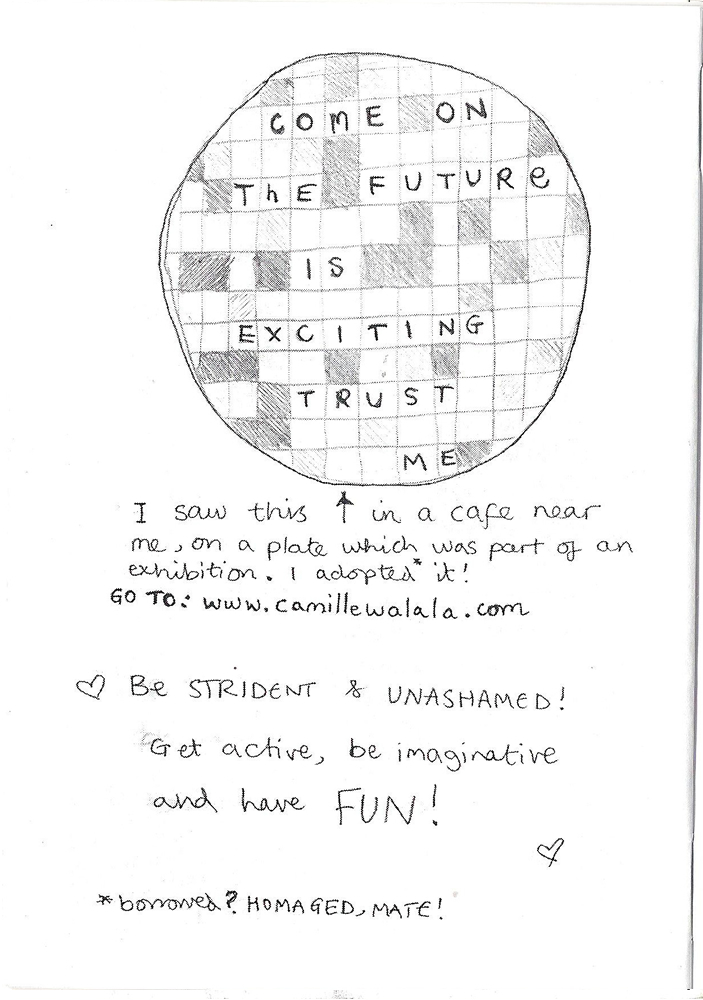 COME ON
ThE FUTURe
IS
EXCITING
TRUST
ME
I saw this ↑ in a cafe near
me, on a plate which was part of an
exhibition. I adopted* it!
GO TO: www.camillewalala.com
♡ Be STRIDENT & UNASHAMED!
Get active, be imaginative
and have FUN!
♡
*borrowed? HOMAGED, MATE!